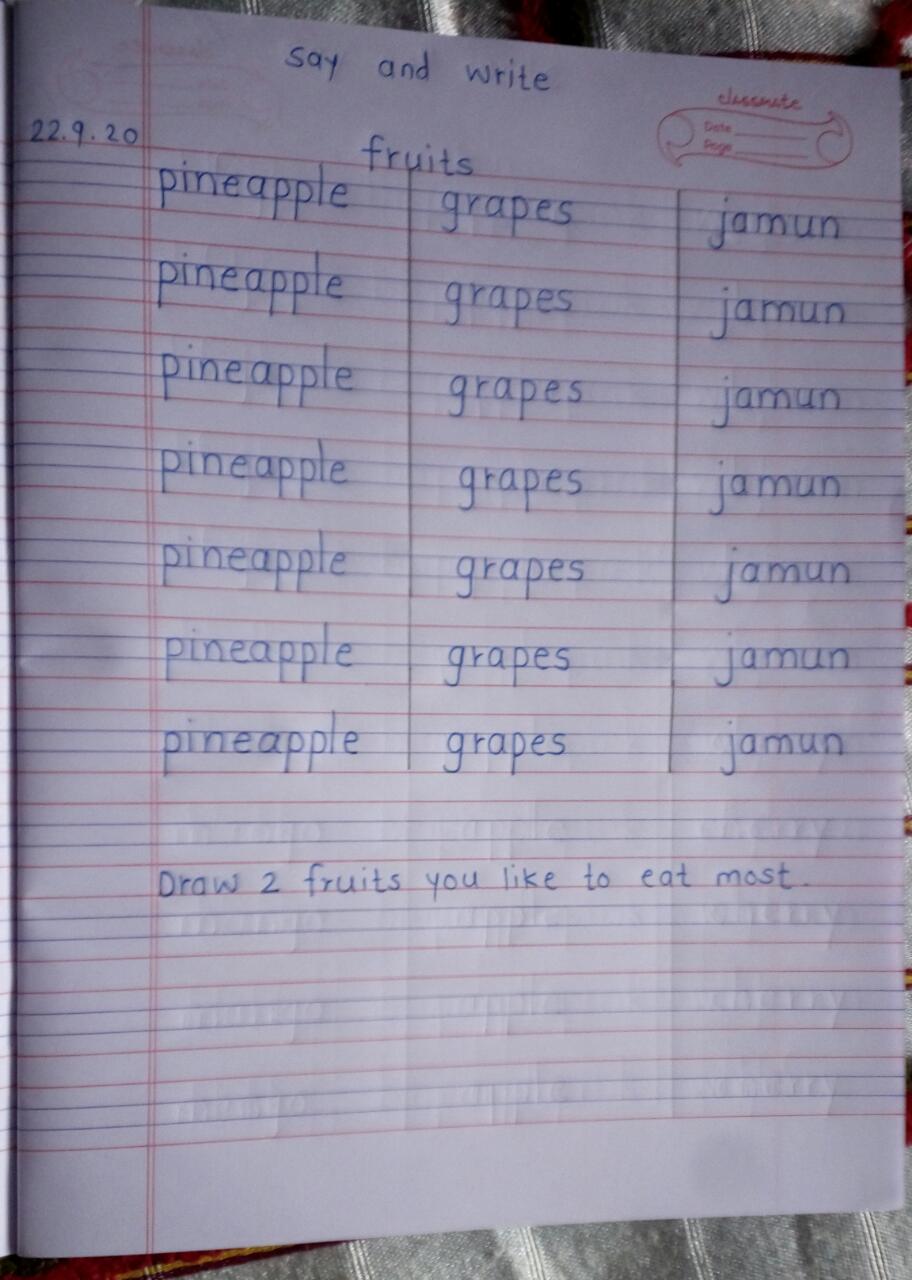 say and write
classmate
Date
Page
22.9.20
fruits
pineapple grapes jamun
pineapple grapes jamun
pineapple grapes jamun
pineapple grapes jamun
pineapple grapes jamun
pineapple grapes jamun
pineapple grapes jamun
Draw 2 fruits you like to eat most.